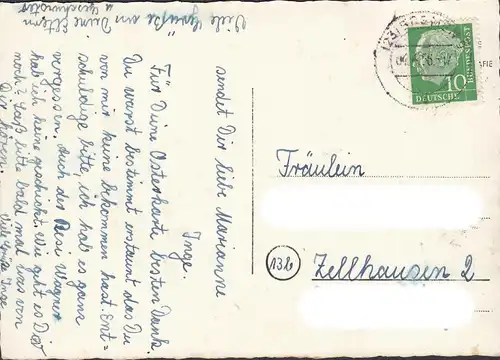 sendet Dir liebe Marianne
Inge.
Für Deine Osterkarte besten Dank.
Du warst bestimmt erstaunt das Du
von mir keine bekommen hast. Ent=
schuldige bitte, ich hab es ganz
vergessen. Auch der Rosi Wagner
hab ich keine geschickt. Wie geht es Dir
noch? Laß bitte bald mal was von
Dir hören.
Viele Grüße Inge
Viele Grüße an Deine Eltern
u. Geschwister
DEUTSCHE
BUNDESPOST
10
Fräulein
13b
Zellhausen 2